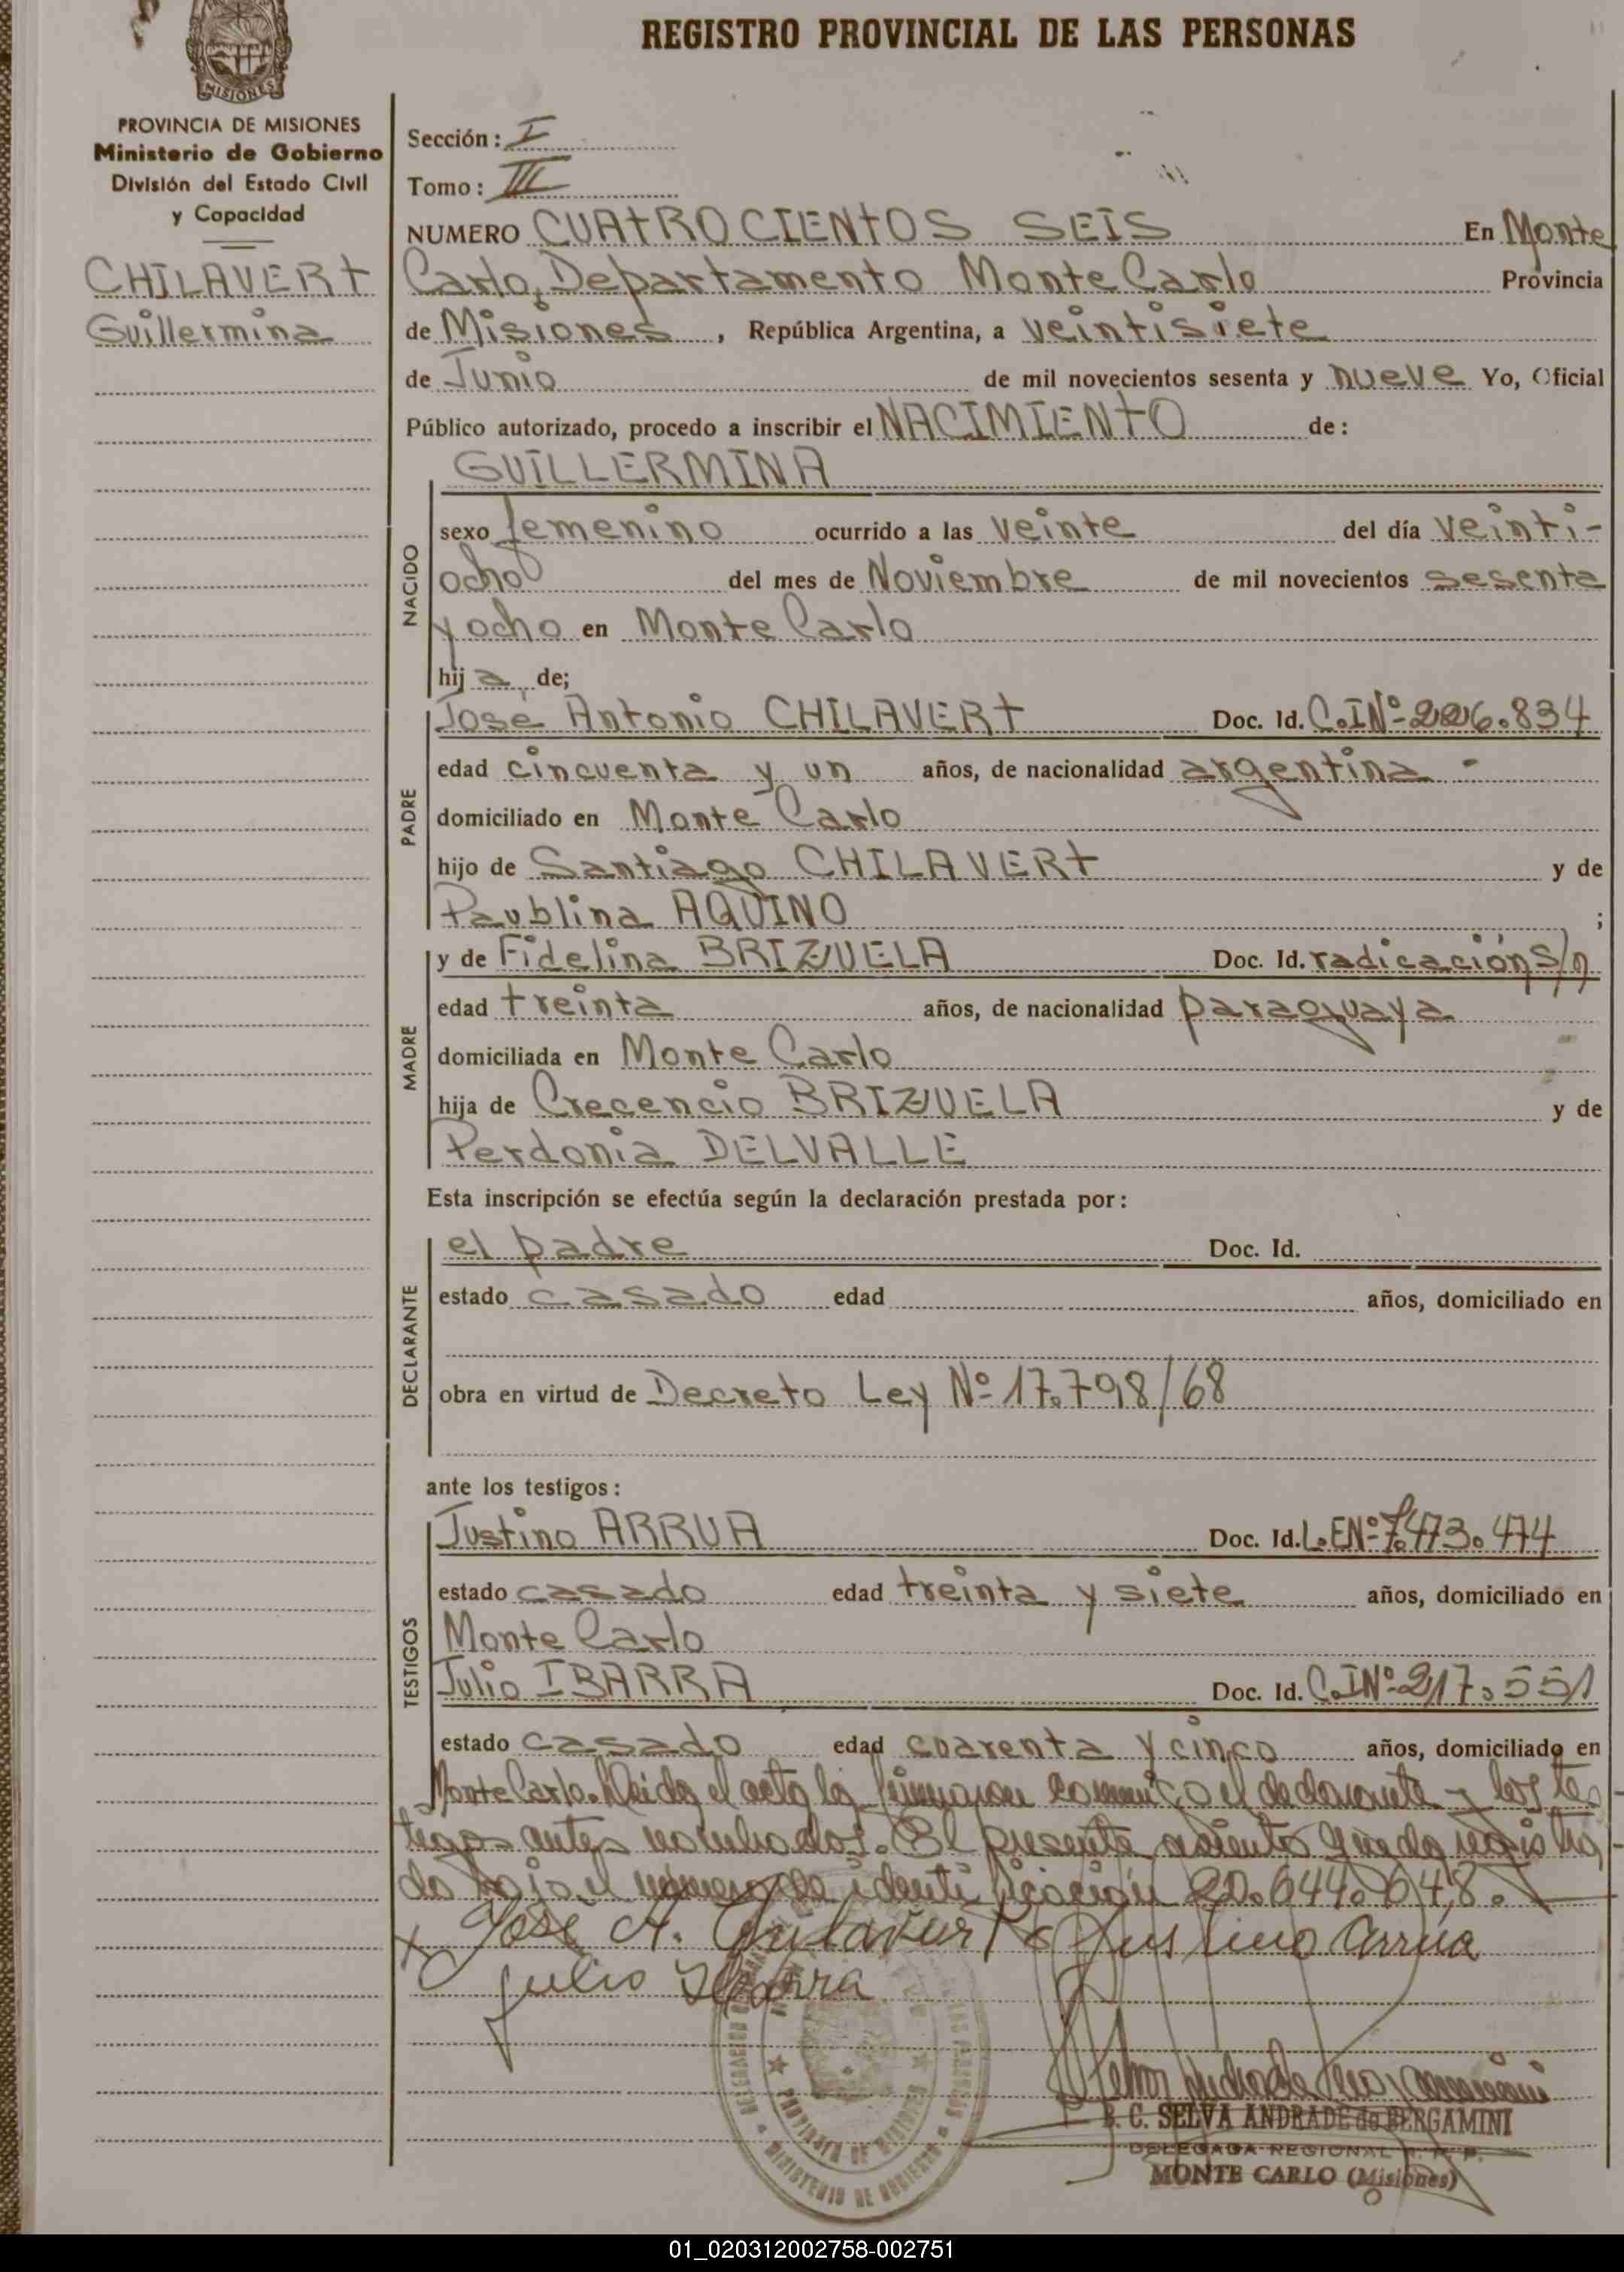 REGISTRO PROVINCIAL DE LAS PERSONAS
MISIONES
PROVINCIA DE MISIONES
Ministerio de Gobierno
División del Estado Civil
y Capacidad
CHILAVERT
Guillermina
Sección: I
Tomo: III
NUMERO CUATROCIENTOS SEIS En Monte
Carlo, Departamento Monte Carlo Provincia
de Misiones, República Argentina, a veintisiete
de Junio de mil novecientos sesenta y nueve Yo, Oficial
Público autorizado, procedo a inscribir el NACIMIENTO de:
NACIDO
GUILLERMINA
sexo femenino ocurrido a las veinte del día veinti-
ocho del mes de Noviembre de mil novecientos sesenta
y ocho en Monte Carlo
hija de;
PADRE
José Antonio CHILAVERT Doc. Id. C.INº 226.834
edad cincuenta y un años, de nacionalidad argentina -
domiciliado en Monte Carlo
hijo de Santiago CHILAVERT y de
Paublina AQUINO ;
MADRE
y de Fidelina BRIZUELA Doc. Id. radicación s/n
edad treinta años, de nacionalidad paraguaya
domiciliada en Monte Carlo
hija de Crecencio BRIZUELA y de
Perdonia DELVALLE
Esta inscripción se efectúa según la declaración prestada por:
DECLARANTE
el padre Doc. Id.
estado casado edad años, domiciliado en
obra en virtud de Decreto Ley Nº 17.798/68
ante los testigos:
TESTIGOS
Justino ARRUA Doc. Id. L.ENº 7.473.474
estado casado edad treinta y siete años, domiciliado en
Monte Carlo
Julio IBARRA Doc. Id. C.INº 217.551
estado casado edad cuarenta y cinco años, domiciliado en
Monte Carlo. Leida el acta la firmaron conmigo el declarante y los tes-
tigos antes nombrados. El presente asiento queda registra-
do bajo el número de identificación 20.644.648.
José A. Chilavert Justino Arrúa
Julio Ibarra
PROVINCIA DE MISIONES
MINISTERIO DE GOBIERNO
B. C. SELVA ANDRADE de BERGAMINI
DELEGADA REGIONAL R. P. P.
MONTE CARLO (Misiones)
01_020312002758-002751